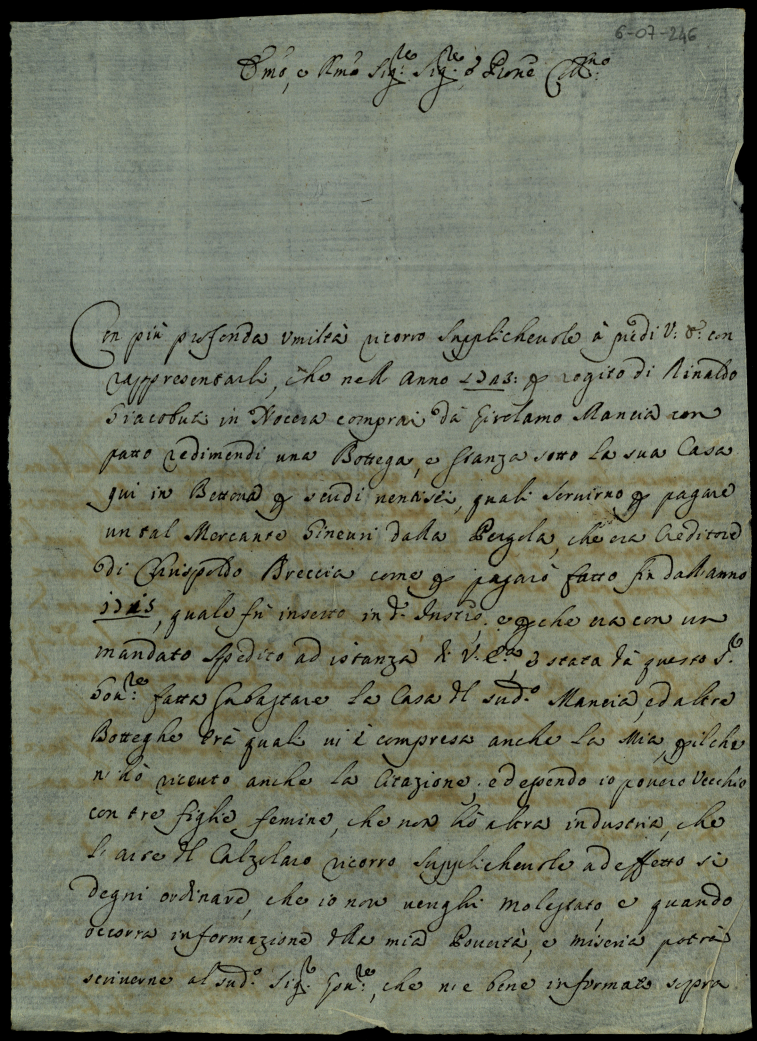 6-07-246
Illmo, e Rmo Sig:re Sig:re e Prone Coll:mo
Con più profonda vmiltà ricorro Supplicheuole à piedi V: S: con
rappresentarli, che nell Anno per rogito di Rinaldo
Giacobuti in Nocera comprai dà Girolamo Mancia con
patto redimendi una Bottega, e Stanza sotto la sua Casa
qui in Bettona per scudi quali seruirno per pagare
un tal Mercante Gineuri dalla Pergola, che era Creditore
di Crispoldo Breccia come per pagarò fatto fin dall anno
quale fù inserto in d:o e perche ora con un
mandato spedito ad istanza di V: è stata dà questo S:re
Gou:re fatta subastare la Casa del sud:o Mancia, ed altre
Botteghe trà quali ui è compresa anche la Mia, per il che
n'hò riceuto anche la Citazione; ed essendo io pouero Vecchio
con tre figlie femine, che non hò altra industria, che
l'arte del Calzolaro ricorro Supplicheuole ad effetto si
degni ordinare, che io non uenghi molestato, e quando
occorra informazione della mia Pouertà, e miseria potrà
scriuerne al sud:o Sig:re Gou:re, che n'è bene informato sopra